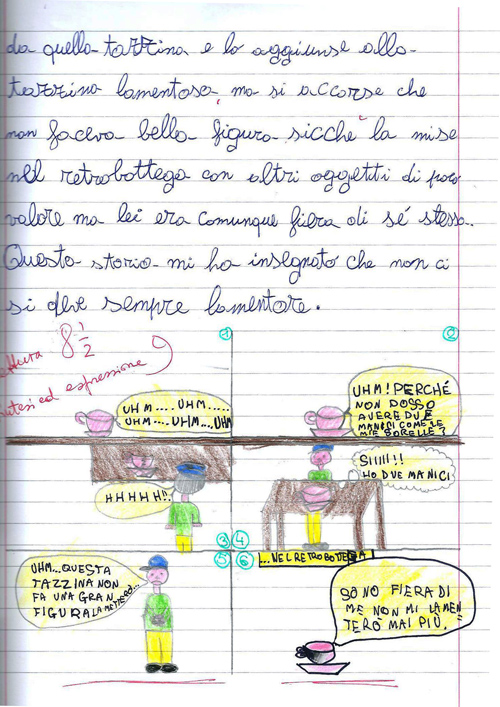 da quella tazzina e lo aggiunse alla
tazzina lamentosa, ma si accorse che
non faceva bella figura sicchè la mise
nel retrobottega con altri oggetti di poco
valore ma lei era comunque fiera di sé stessa.
Questa storia mi ha insegnato che non ci
si deve sempre lamentare.
1
2
8 1/2
9
ed espressione
UHM..... UHM.....
UHM.... UHM... UHM
UHM! PERCHÉ
NON POSSO
AVERE DUE
MANICI COME LE
MIE SORELLE?
HHHHH!!
SIIIII!!
HO DUE MANICI
3 4
5 6
UHM...QUESTA
TAZZINA NON
FA UNA GRAN
FIGURA LA METTERÒ...
...NEL RETROBOTTEGA
SONO FIERA DI
ME NON MI LAMEN
TERÒ MAI PIÙ.